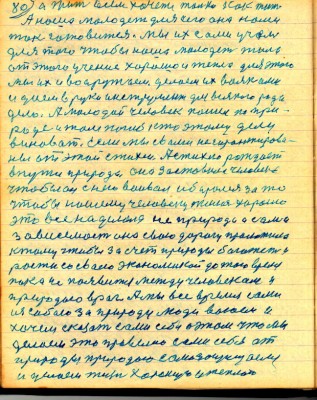 80/ а жить всем хочется только как жить
А наша молодежь для чего она нами
так готовится. мы их сами учим
для того чтобы наша молодежь жила
от этого учение хорошо и тепло для этого
мы их и вооружаем, делаем их вояками
и даем в руки инструмент для всякого рода
дело. А молодой человек пошел по при-
роде и там погиб кто этому делу
виноват. Если мы сами не гарантирова-
ны от этой стихии. А стихию рождает
внутри природа, она заставила человека
чтобы он с нею воевал и боролся за то
чтобы нашему человеку жилося хорошо
это все надиля не природа а сама
зависимость она свою дорогу проложила
к тому чтобы за счет природы богатеть и
расти со своею экономикой до того время
пока не появится между человеком и
природою враг. А мы все время сами
из собою за природу люди воюем и
хочем сказать сами себе о том что мы
делаем это правильно сами себя от
природы природою самозащищаем
и хочем жить хорошо и тепло